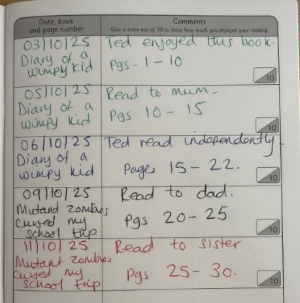 Date, book and page number
Comments
Give a score out of 10 to show how much you enjoyed your reading
03/10/25
Diary of a
wimpy kid
Ted enjoyed this book.
Pgs - 1 - 10
10
05/10/25
Diary of a
wimpy kid
Read to mum -
Pgs 10 - 15
10
06/10/25
Diary of a
wimpy kid
Ted read independently
Pages 15 - 22.
10
09/10/25
Mutant Zombies
Cursed my
school trip
Read to dad.
Pgs 20 - 25
10
11/10/25
Mutant Zombies
Cursed my
school trip
Read to sister.
Pgs 25 - 30.
10